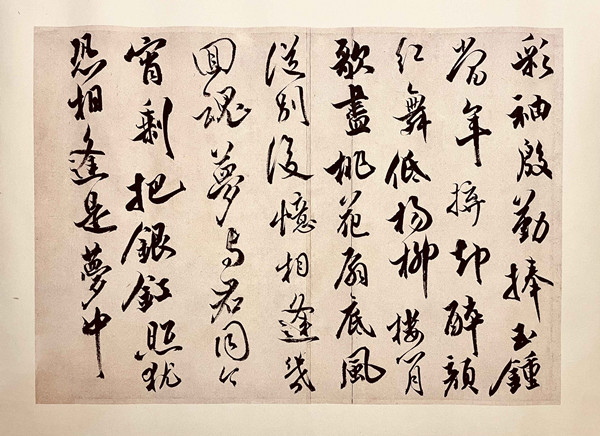 彩袖殷勤捧玉鍾
當年拚却醉顏
紅舞低楊柳樓心月
歌盡桃花扇底風
從別後憶相逢幾
回魂夢與君同今
宵剩把銀釭照猶
恐相逢是夢中